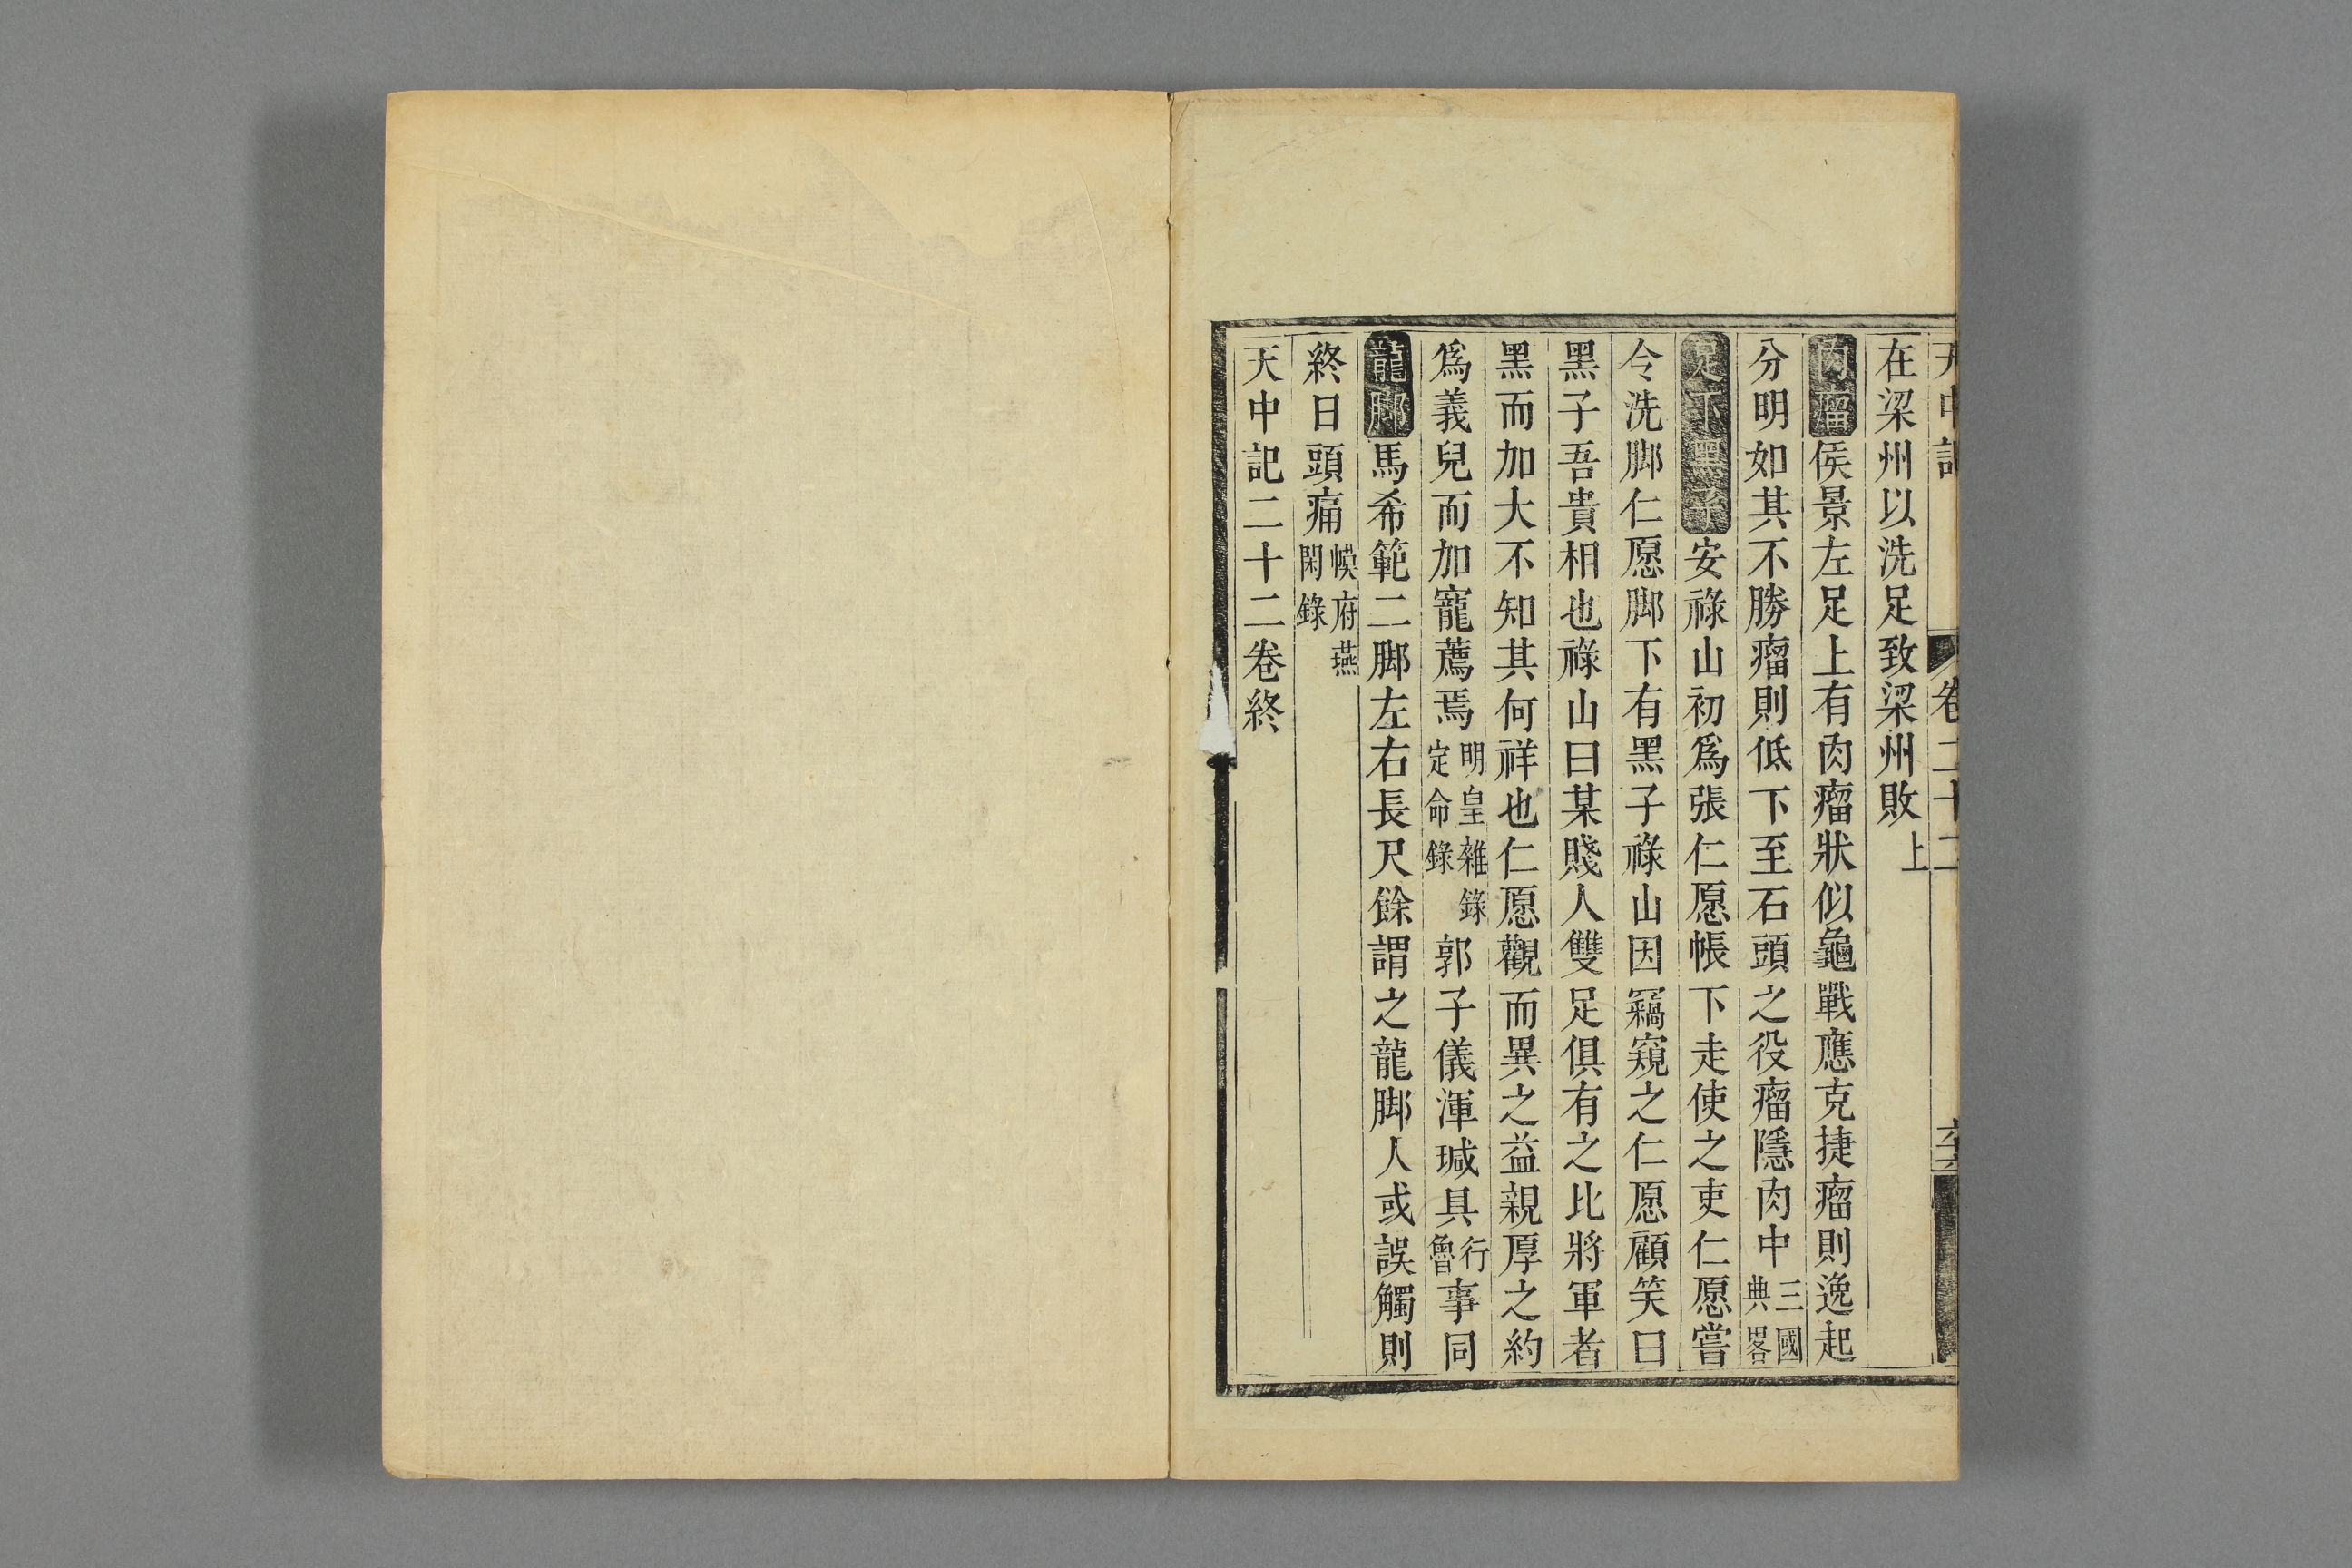 天中記 卷二十二
在梁州以洗足致梁州敗上
肉瘤侯景左足上有肉瘤狀似龜戰應克捷瘤則逸起
分明如其不勝瘤則低下至石頭之役瘤隱肉中三國典畧
足下黑子安祿山初爲張仁愿帳下走使之吏仁愿嘗
令洗脚仁愿脚下有黑子祿山因竊窺之仁愿顧笑曰
黑子吾貴相也祿山曰某賤人雙足俱有之比將軍者
黑而加大不知其何祥也仁愿觀而異之益親厚之約
爲義兒而加寵薦焉明皇雜錄定命錄郭子儀渾瑊具行魯事同
龍脚馬希範二脚左右長尺餘謂之龍脚人或誤觸則
終日頭痛幙府燕閑錄
天中記二十二卷終